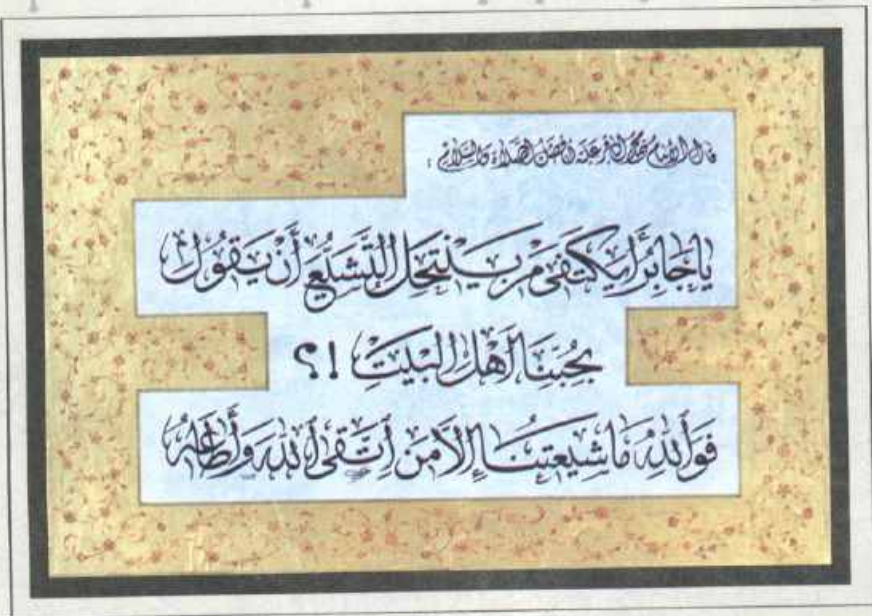 قال الإمام محمد الباقر عليه أفضل الصلاة والسلام :
يا جابر أيكتفي من ينتحل التشيع أن يقول
بحبنا أهل البيت !؟
فوالله ما شيعتنا إلا من اتقى الله وأطاعه